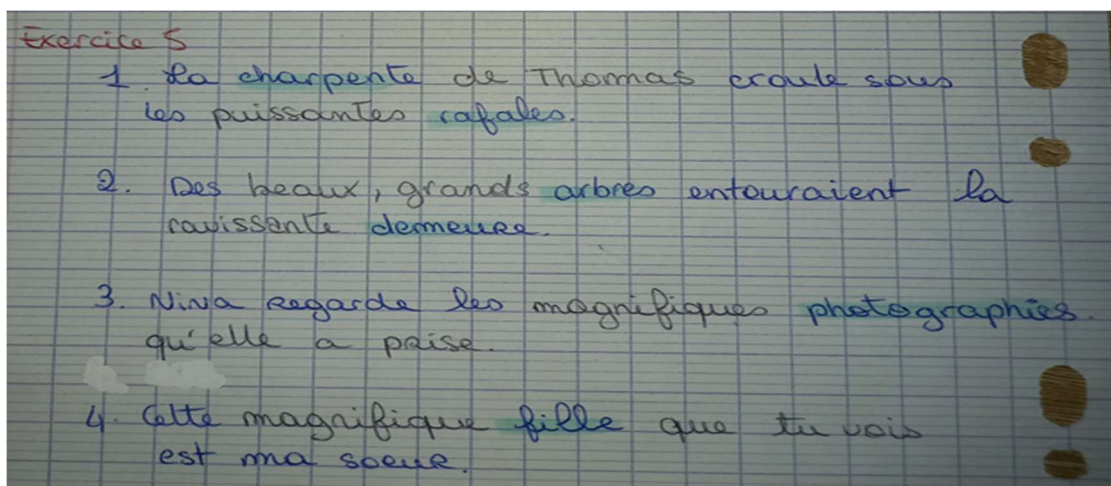 Exercice 5
1. La charpente de Thomas croule sous
les puissantes rafales.
2. Des beaux, grands arbres entouraient la
ravissante demeure.
3. Nina regarde les magnifiques photographies.
qu'elle a prise.
4. Cette magnifique fille que tu vois
est ma soeur.